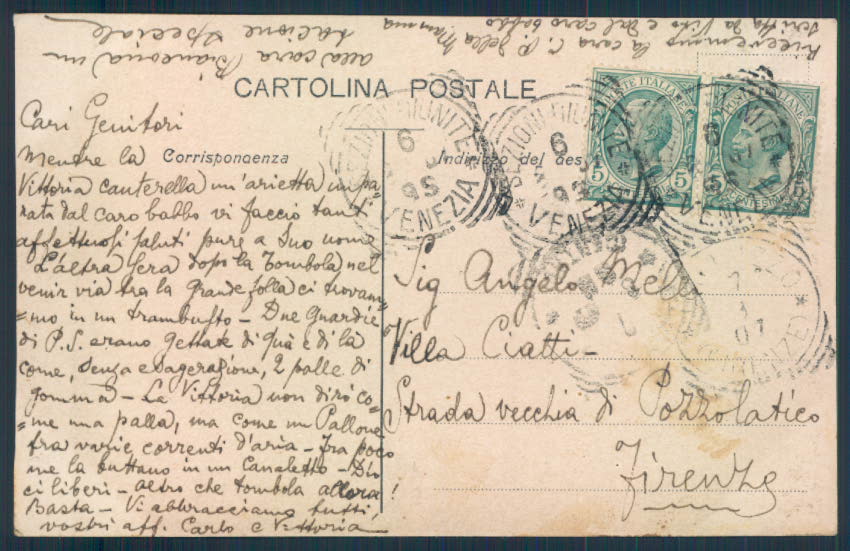 Ricevemmo la cara C. P. della Mamma
scritta da Vito e dal caro babbo
alla cara Bianconia in
stazione speciale
CARTOLINA POSTALE
Corrispondenza
Indirizzo del des
Cari Genitori
Mentre la
Vittoria canterella un'arietta impa-
rata dal caro babbo vi faccio tanti
affettuosi saluti pure a suo nome
L'altra sera dopo la Tombola nel
venir via tra la grande folla ci trovam-
=mo in un trambusto - Due Guardie
di P.S. erano gettate di quà e di là
come, senza esagerazione, 2 palle di
gomma - La Vittoria non dirò co-
=me una palla, ma come un Pallone
fra varie correnti d'aria - Fra poco
me la buttano in un Canaletto - Dio
ci liberi - altro che tombola allora!
Basta - Vi abbracciamo tutti,
vostri aff. Carlo e Vittoria
Sig Angelo Melli
Villa Ciatti -
Strada vecchia di Pozzolatico
Firenze
POSTE ITALIANE
5
5
POSTE ITALIANE
CENTESIMI
5
SEZIONI RIUNITE
6
95
VENEZIA
SEZIONI RIUNITE
6
95
VENEZIA
VENEZIA
07
(FIRENZE)